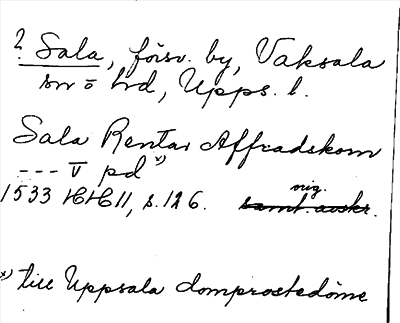 ? Sala, försv. by, Vaksala
sn o hrd, Upps. l.
Sala Rentar Affradskorn
--- V pd x)
1533 HH 11, s. 126. orig.
samt. avskr.
x) till Uppsala domprostedöme